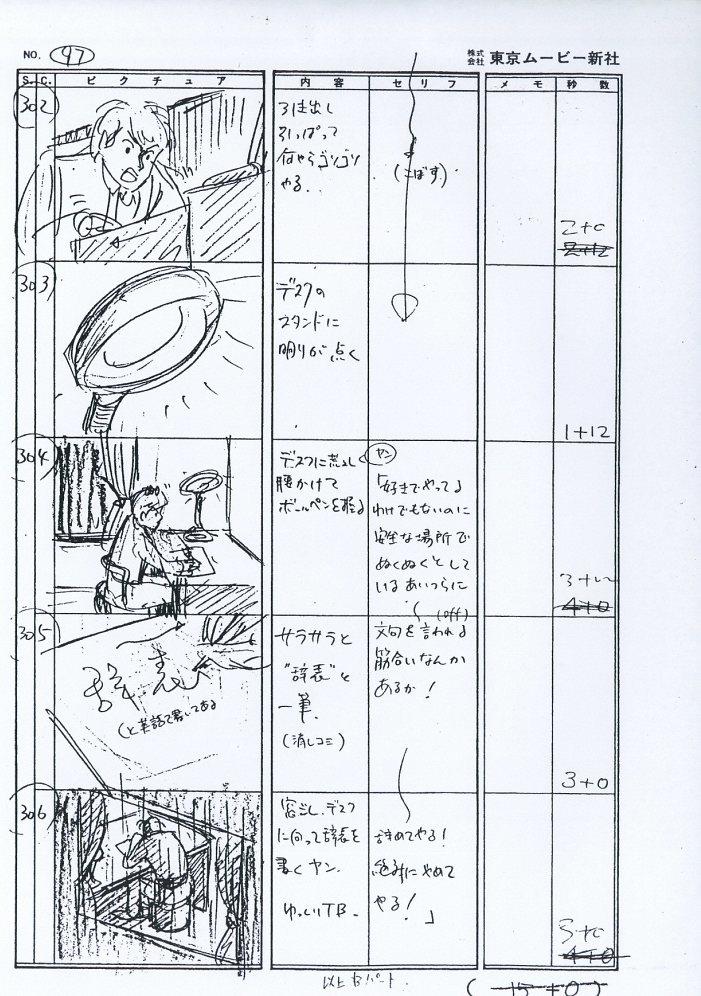 NO. 97
株式会社 東京ムービー新社
S. C. ピクチュア 内容 セリフ メモ 秒数
302
引き出し
引っぱって
何やらゴソゴソ
やる..
(こぼす)
2+0
2+12
303
デスクの
スタンドに
明りが点く
1+12
304
デスクに荒々しく
腰かけて
ボールペンを握る
ヤン
「好きでやってる
わけでもないのに
安全な場所で
ぬくぬくとして
いるあいつらに
4+0
305
辞表
(と英語で書いてある
サラサラと
"辞表"と
一筆.
(消しコミ)
(off)
文句を言われる
筋合いなんか
あるか!
3+0
306
窓ごし、デスク
に向って辞表を
書くヤン.
ゆっくりTB.
辞めてやる!
絶対にやめて
やる!」
4+0
以上Bパート.
(15+0)